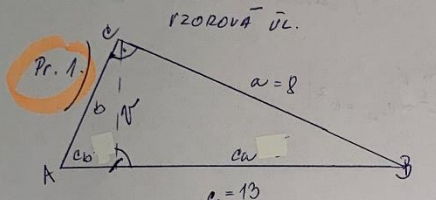 VZOROVÁ ÚL.
Pr. 1.)
C
a = 8
b
v
A
cb
ca
B
c = 13